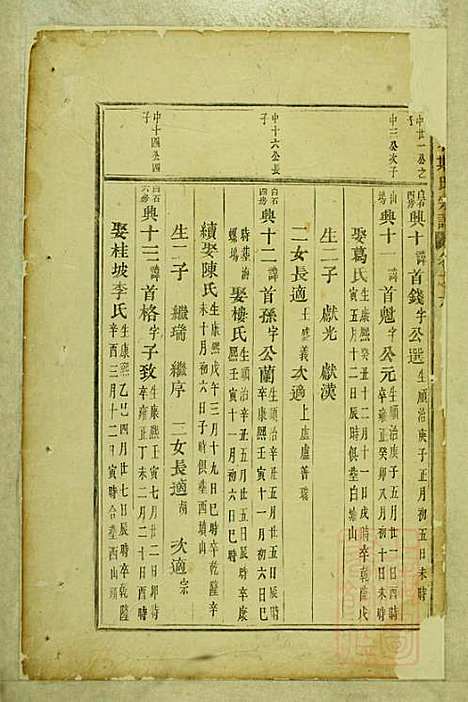 氏宗譜
中廿一公之子
白石四房 興十 諱首錢字公選 生順治庚子正月初五日未時
中三公次子
興十一 諱首魁字公元 生順治庚子五月一日酉時 卒雍正癸卯八月初十日亥時
娶葛氏 生康熙癸丑十二月十一日戌時卒乾隆戊寅五月十二日辰時俱塟白塘山
生二子 獻光 獻漢
二女長適 王盛義 次適 上虞盧善瑞
中十六公長子
白石四房 興十二 諱首孫字公蘭 生順治辛丑五月廿五日辰時 卒康熙壬寅十一月初六日巳時塟湖螺塢
娶樓氏 生順治辛丑五月廿五日辰時卒康熙壬寅十一月初六日巳時
續娶陳氏 生康熙戊午三月十九日巳時卒乾隆辛未十月初六日子時俱塟西墳山
生二子 繼瑞 繼序 三女長適 次適
中十四公四子
白石六房 興十三 諱首格字子致 生康熙壬寅七月廿二日卯時 卒雍正丁未二月二十日酉時
娶桂坡李氏 生康熙乙巳四月廿七日辰時卒乾隆辛酉三月十二日寅時合塟西山頭